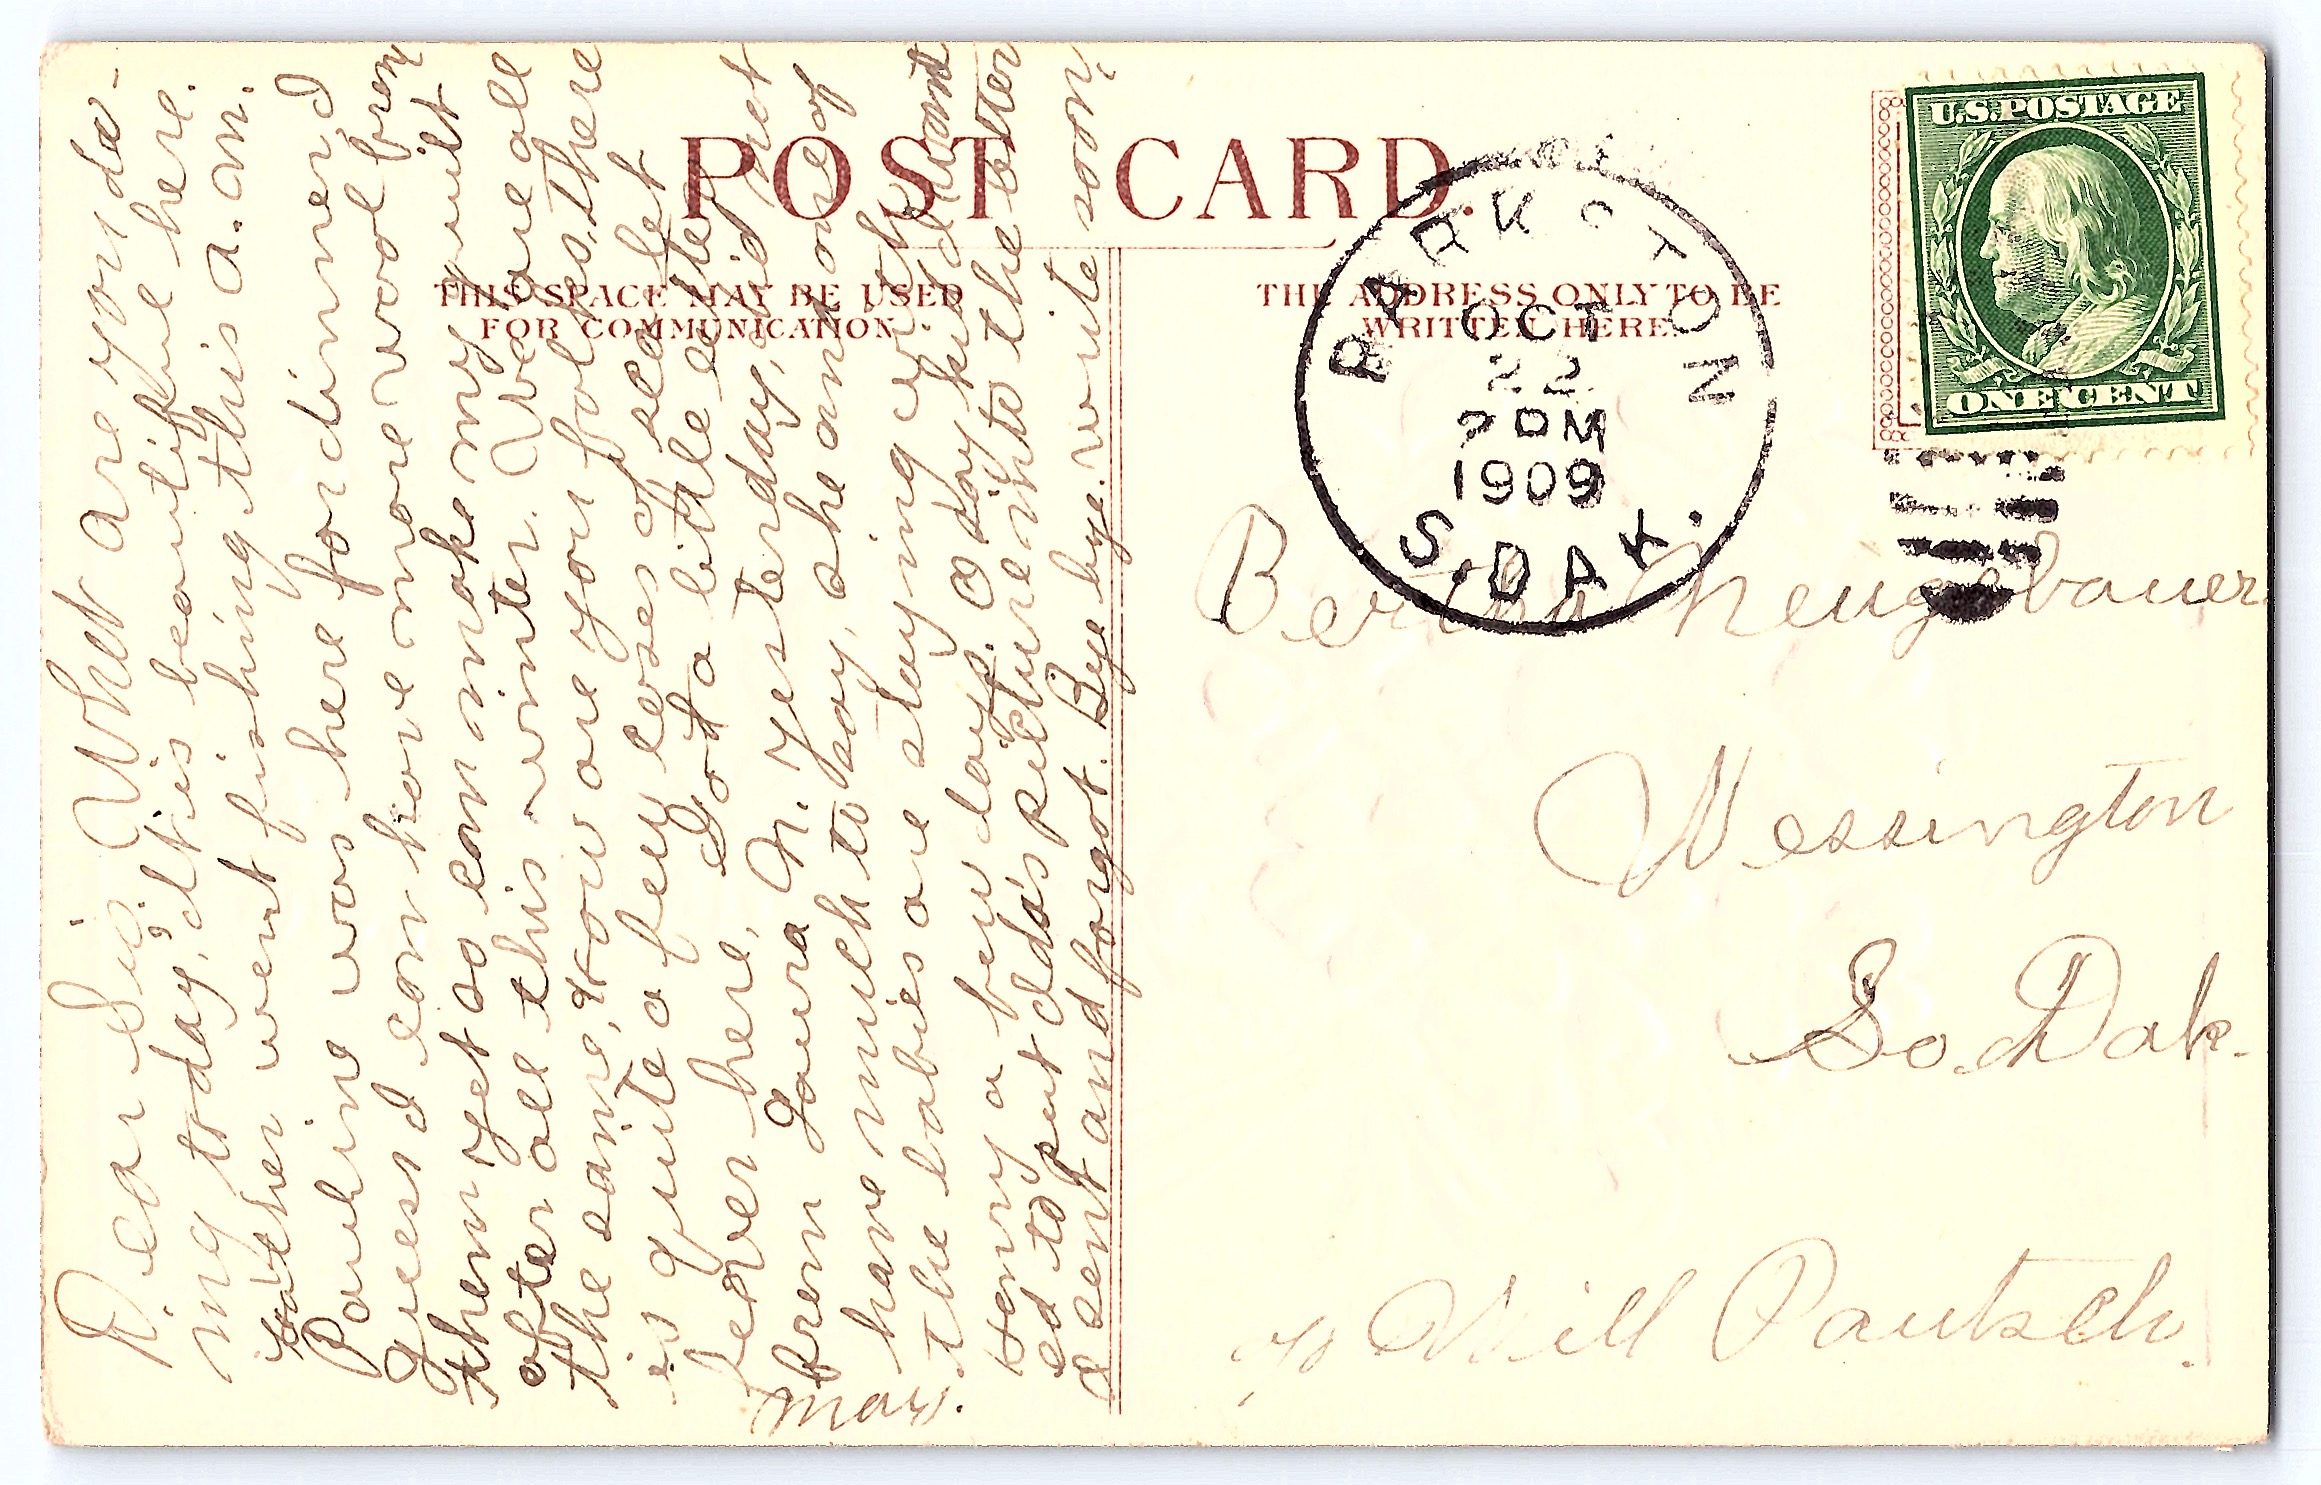 POST CARD.
THIS SPACE MAY BE USED
FOR COMMUNICATION
THE ADDRESS ONLY TO BE
WRITTEN HERE
U.S. POSTAGE
ONE CENT
PARKSTON
OCT
22
PM
1909
S. DAK.
Dear Sis. What are you do-
ing today, it is beautiful here.
Father went fishing this a. m.
Pauline was here for dinner I
guess I can have more wool from
them yet so can make my quilt
after all this winter. We are all
the same, How are you folkes, there
is quite a few cases of scarlet
fever here, Got a little letter
from Laura N. yesterday, did not
have much to say, she and one of
the babies are staying with
Henry a few days. O day Ida want
ed to put Ida's picture into the letter
I sent and forgot. Bye bye. write soon.
Mary.
Bertha Neugebauer
Wessington
So. Dak.
% Will Pautsch.